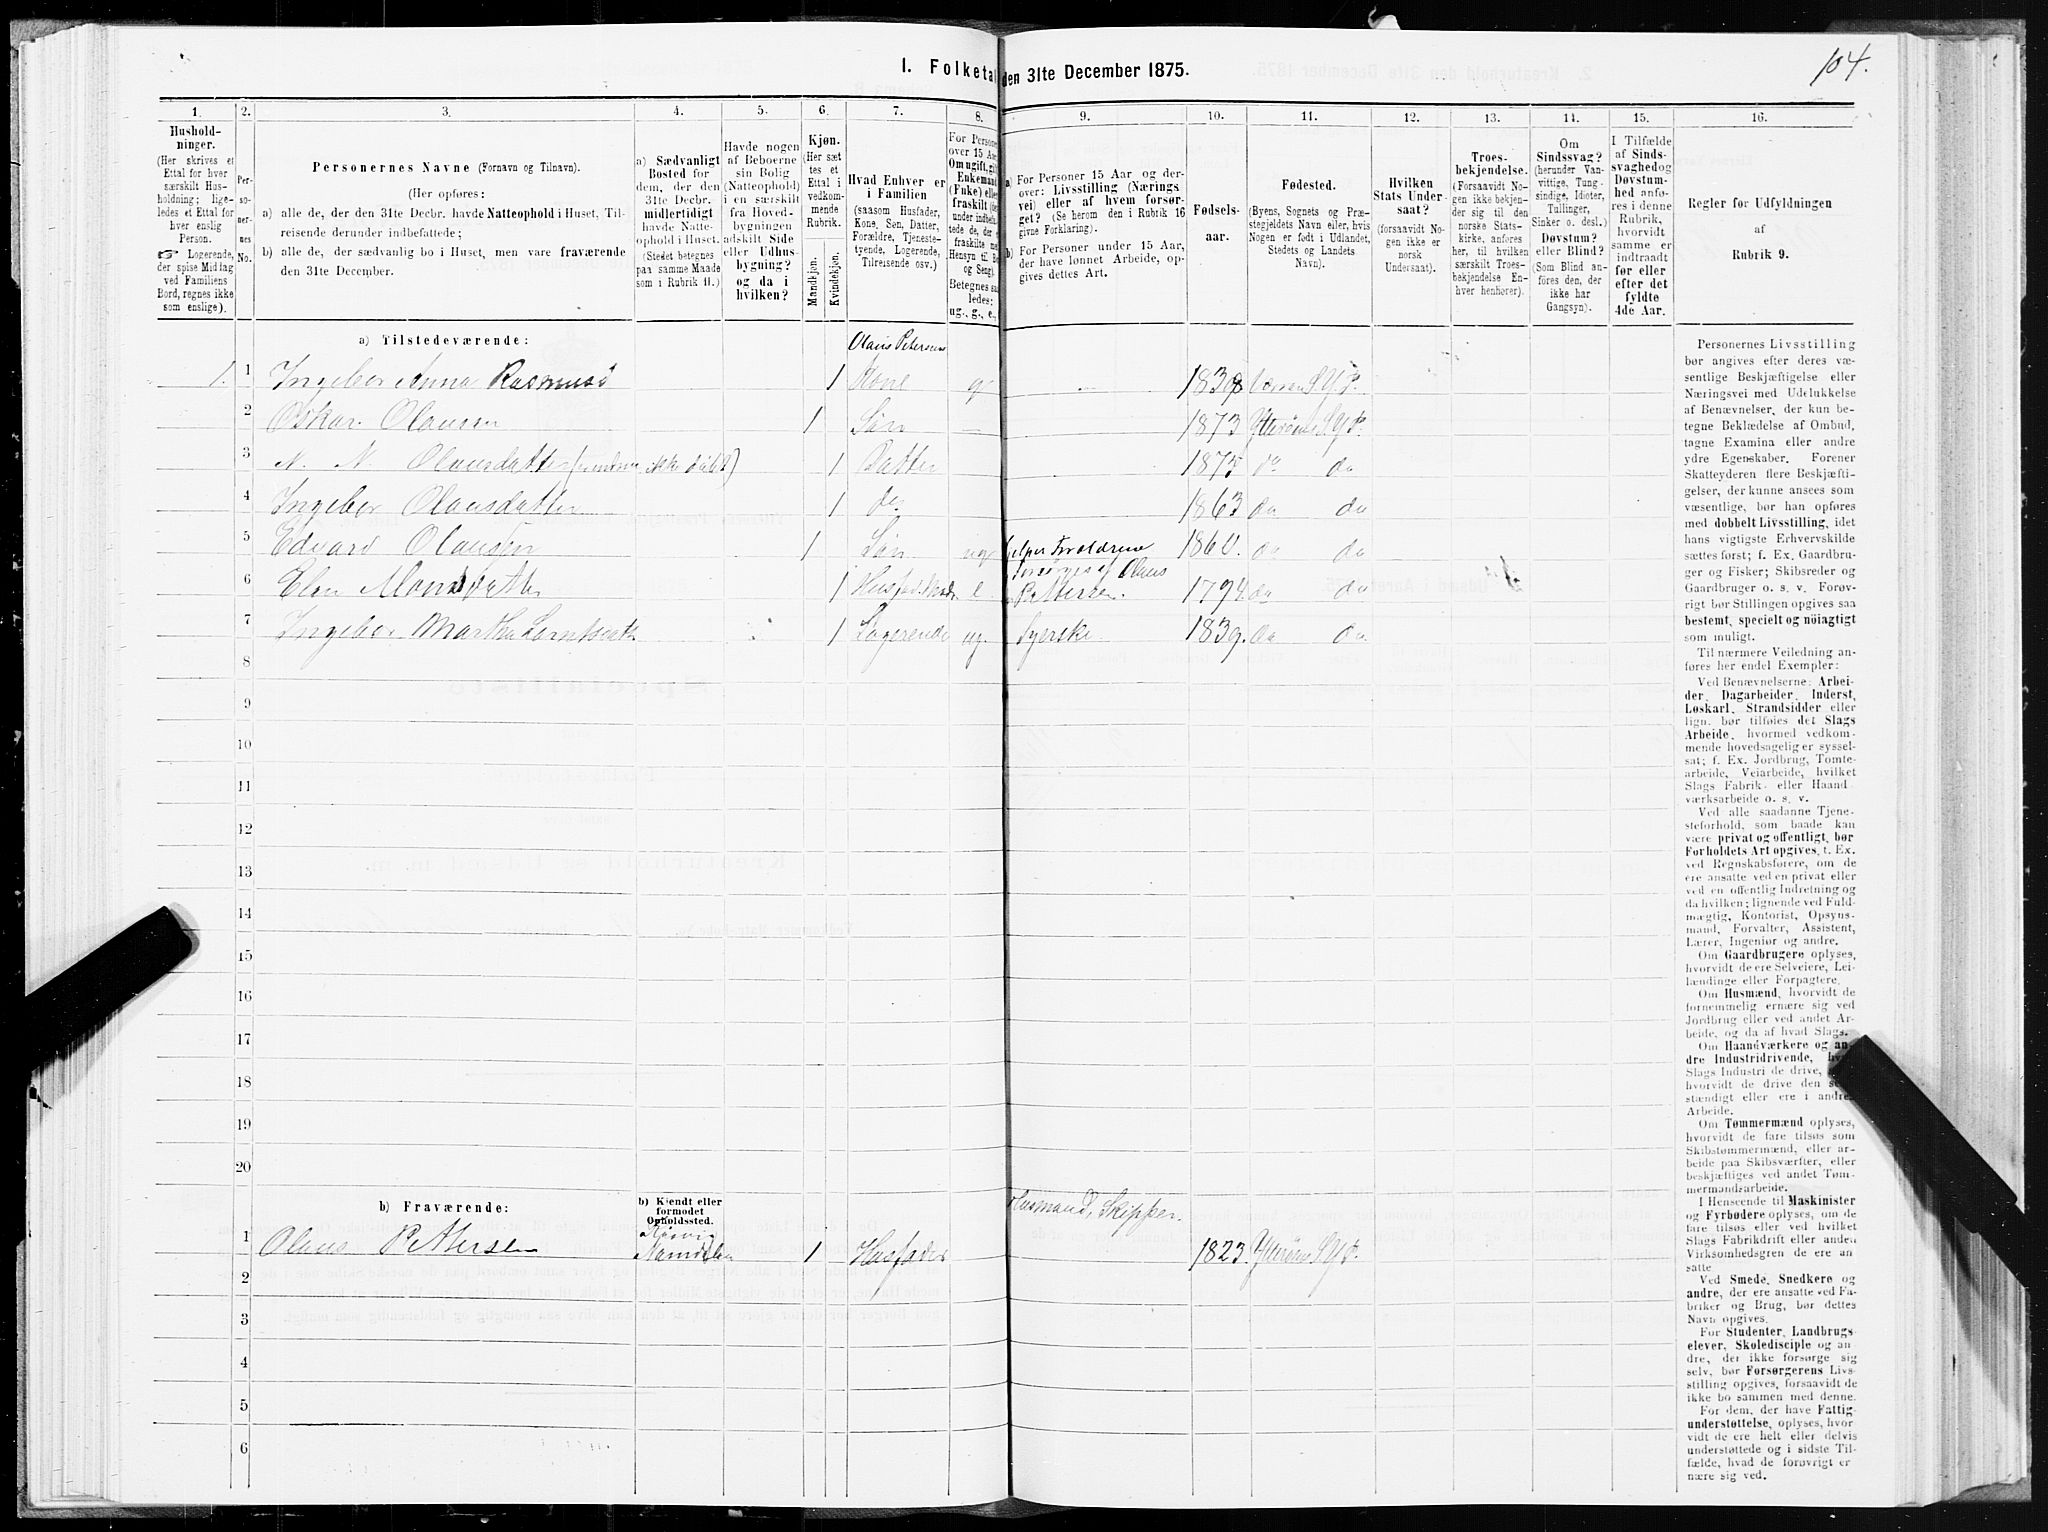 104.
I. Folketal den 31te December 1875.
1. 2. 3. 4. 5. 6. 7. 8. 9. 10. 11. 12. 13. 14. 15. 16.
Hushold-
ninger.
(Her skrives et
Ettal for hver
særskilt Hus-
holdning; lige-
ledes et Ettal for
hver enslig
Person.
☞ Logerende,
der spise Middag
ved Familiens
Bord, regnes ikke
som enslige).
Per-
soner-
nes
No.
Personernes Navne (Fornavn og Tilnavn).
(Her opføres:
a) alle de, der den 31te Decbr. havde Natteophold i Huset, Til-
reisende derunder indbefattede;
b) alle de, der sædvanlig bo i Huset, men vare fraværende
den 31te December.
a) Sædvanligt
Bosted for
dem, der den
31te Decbr.
midlertidigt
havde Natte-
ophold i Huset.
(Stedet betegnes
paa samme Maade
som i Rubrik 11.)
Havde nogen
af Beboerne
sin Bolig
(Natteophold)
i en særskilt
fra Hoved-
bygningen
adskilt Side
eller Udhus-
bygning?
og da i
hvilken?
Kjøn.
(Her sæt-
tes et
Ettal i
vedkom-
mende
Rubrik.
Mandkjøn.
Kvindekjøn.
Hvad Enhver er
i Familien
(saasom Husfader,
Kone, Søn, Datter,
Forældre, Tjeneste-
tyende, Logerende,
Tilreisende osv.)
For Personer
over 15 Aar:
Om ugift, gift,
Enkemand
(Enke) eller
fraskilt
Betegnes saa-
ledes:
ug., g., e.,
a) For Personer 15 Aar og der-
over: Livsstilling (Nærings
vei) eller af hvem forsør-
get? (Se herom den i Rubrik 16
givne Forklaring).
b) For Personer under 15 Aar,
der have lønnet Arbeide, op-
gives dettes Art.
Fødsels-
aar.
Fødested.
(Byens, Sognets og Præ-
stegjeldets Navn eller, hvis
Nogen er født i Udlandet,
Stedets og Landets
Navn).
Hvilken
Stats Under-
saat?
(forsaavidt No-
gen ikke er
norsk
Undersaat).
Troes-
bekjendelse.
(Forsaavidt No-
gen ikke bekjen-
der sig til den
norske Stats-
kirke, anføres
her, til hvilken
særskilt Troes-
bekjendelse En-
hver henhører).
Om
Sindssvag?
(herunder Van-
vittige, Tung-
sindige, Idioter,
Tullinger,
Sinker o. desl.)
Døvstum?
eller Blind?
(Som Blind an-
føres den, der
ikke har
Gangsyn).
I Tilfælde
af Sinds-
svaghed og
Døvstum-
hed anfø-
res i denne
Rubrik,
hvorvidt
samme er
indtraadt
før eller
efter det
fyldte
4de Aar.
Regler for Udfyldningen
af
Rubrik 9.
a) Tilstedeværende:
Olaus Petersens
1. 1 Ingebor Anna Rasmusd 1 Kone g 1838 S. Y. P.
2 Oskar Olausen 1 Søn — 1873 Ytterøens S. Y. P.
3 N. N. Olausdatter ( ikke døbt) 1 Datter 1875 do do
4 Ingebor Olausdatter 1 do 1863 do do
5 Edvard Olausen 1 Søn ug Hjelper Forældrene 1860. do do
6 Elen Monsdatter 1 Husfad. Mod. e. Forsørges af Olaus Pettersen. 1794 do do
7 Ingebor Martha Lorntsdatt 1 Logerende ug. Syerske. 1839. do do
8
9
10
11
12
13
14
15
16
17
18
19
20
b) Fraværende:
b) Kjendt eller
formodet
Opholdssted.
Husmand, Skipper.
1 Olaus Pettersen Namdalen 1 Husfader 1823. Ytterøens S. Y. P.
2
3
4
5
6
Personernes Livsstilling
bør angives efter deres væ-
sentlige Beskjæftigelse eller
Næringsvei med Udelukkelse
af Benævnelser, der kun be-
tegne Beklædelse af Ombud,
tagne Examina eller andre
ydre Egenskaber. Forener
Skatteyderen flere Beskjæfti-
gelser, der kunne ansees som
væsentlige, bør han opføres
med dobbelt Livsstilling, idet
hans vigtigste Erhvervskilde
sættes først; f. Ex. Gaardbru-
ger og Fisker; Skibsreder og
Gaardbruger o. s. v. Forøv-
rigt bør Stillingen opgives saa
bestemt, specielt og nöiagtigt
som muligt.
Til nærmere Veiledning an-
føres her endel Exempler:
Ved Benævnelserne: Arbei-
der, Dagarbeider, Inderst,
Løskarl, Strandsidder eller
lign. bør tilføies det Slags
Arbeide, hvormed vedkom-
mende hovedsagelig er syssel-
sat; f. Ex. Jordbrug, Tomte-
arbeide, Veiarbeide, hvilket
Slags Fabrik- eller Haand
værksarbeide o. s. v.
Ved alle saadanne Tjene-
steforhold, som baade kan
være privat og offentligt, bør
Forholdets Art opgives, t. Ex.
ved Regnskabsførere, om de
ere ansatte ved en privat eller
ved en offentlig Indretning og
da hvilken; lignende ved Fuld-
mægtig, Kontorist, Opsyns-
mand, Forvalter, Assistent,
Lærer, Ingeniør og andre.
Om Gaardbrugere oplyses,
hvorvidt de ere Selveiere, Lei-
lændinge eller Forpagtere.
Om Husmænd, hvorvidt de
fornemmelig ernære sig ved
Jordbrug eller ved andet Ar-
beide, og da af hvad Slags.
Om Haandværkere og an-
dre Industridrivende,
Slags Industri de drive,
hvorvidt de drive den
stændigt eller ere i andres
Arbeide.
Om Tømmermænd oplyses,
hvorvidt de fare tilsøs som
Skibstømmermænd, eller ar-
beide paa Skibsværfter, eller
beskjæftiges ved andet Tøm-
mermandsarbeide.
I Henseende til Maskinister
og Fyrbødere oplyses, om de
fare tilsøs eller ved hvilket
Slags Fabrikdrift eller anden
Virksomhedsgren de ere an-
satte
Ved Smede, Snedkere og
andre, der ere ansatte ved Fa-
briker og Brug, bør dettes
Navn opgives.
For Studenter, Landbrugs-
elever, Skoledisciple og an-
dre, der ikke forsørge sig
selv, bør Forsørgerens Livs-
stilling opgives, forsaavidt de
ikke bo sammen med denne.
For dem, der have Fattig-
understøttelse, oplyses, hvor
vidt de ere helt eller delvis
understøttede og i sidste Til-
fælde, hvad de forøvrigt er
nære sig ved.